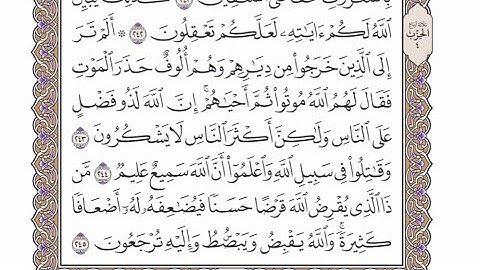 اللَّهُ لَكُمْ ءَايَٰتِهِۦ لَعَلَّكُمْ تَعْقِلُونَ ٢٤٢ ۞ أَلَمْ تَرَ
إِلَى الَّذِينَ خَرَجُوا۟ مِن دِيَٰرِهِمْ وَهُمْ أُلُوفٌ حَذَرَ الْمَوْتِ
فَقَالَ لَهُمُ اللَّهُ مُوتُوا۟ ثُمَّ أَحْيَٰهُمْ ۚ إِنَّ اللَّهَ لَذُو فَضْلٍ
عَلَى النَّاسِ وَلَٰكِنَّ أَكْثَرَ النَّاسِ لَا يَشْكُرُونَ ٢٤٣
وَقَٰتِلُوا۟ فِي سَبِيلِ اللَّهِ وَاعْلَمُوٓا۟ أَنَّ اللَّهَ سَمِيعٌ عَلِيمٌ ٢٤٤ مَّن
ذَا الَّذِي يُقْرِضُ اللَّهَ قَرْضًا حَسَنًا فَيُضَٰعِفَهُۥ لَهُۥٓ أَضْعَافًا
كَثِيرَةً ۚ وَاللَّهُ يَقْبِضُ وَيَبْصُۜطُ وَإِلَيْهِ تُرْجَعُونَ ٢٤٥
الحزب
٤